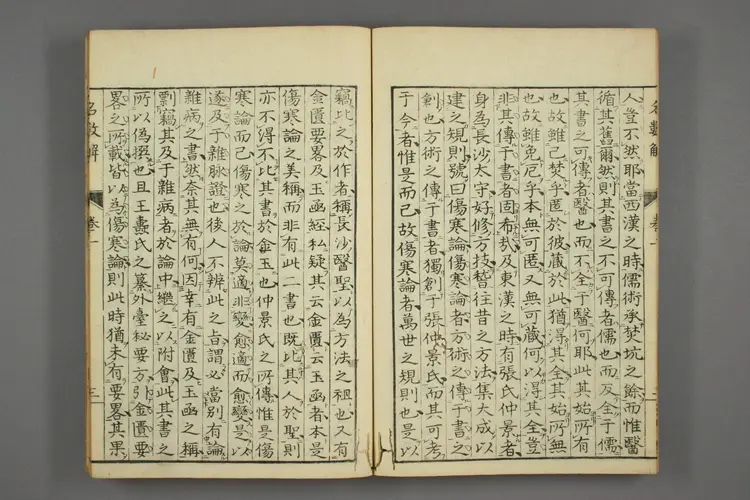 人豈不然耶當西漢之時儒術承焚坑之餘而惟醫
循其舊爾然則其書之不可傳者儒也而反全于儒
其書之可傳者醫也而不全于醫何耶此其始所有
也故雖已焚乎匿於彼藏於此猶得其全其始所無
也故雖免厄乎本無可匿又無可藏何以得其全豈
非其傳于書者固希哉及東漢之時有張氏仲景者
身為長沙太守好修方技瞀往昔之方法集大成以
建之規則號曰傷寒論傷寒論者方術之傳于書之
創也方術之傳于書者獨創于張仲景氏而其可考
于今者惟是而已故傷寒論者萬世之規則也是以
竊比之於作者稱長沙醫聖以為方法之祖也又有
金匱要畧及玉函經私疑其云金匱云玉函者本是
傷寒論之美稱而非有此二書也既比其人於聖則
亦不得不比其書於金玉也仲景氏之所傳惟是傷
寒論而已傷寒之於論莫適非變愈適而愈變是以
遂及于雜脉證也後人不辨此之旨謂必當別有論
雜病之書然奈其無有何因幸有金匱及玉函之稱
剽竊其及于雜病者於論中繼之以附會此其書之
所以偽撰也且王燾氏之纂外臺秘要方引金匱要
畧之所載皆以為傷寒論則此時猶未有要畧其果
名數解
卷一
三
名數解
卷一